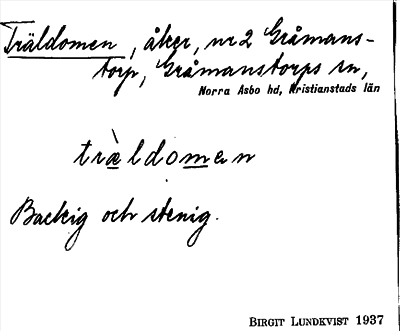 Träldomen, åker, nr 2 Gråmans-
torp, Gråmanstorps sn,
Norra Asbo hd, Kristianstads län
tràldomen
Backig och stenig.
BIRGIT LUNDKVIST 1937